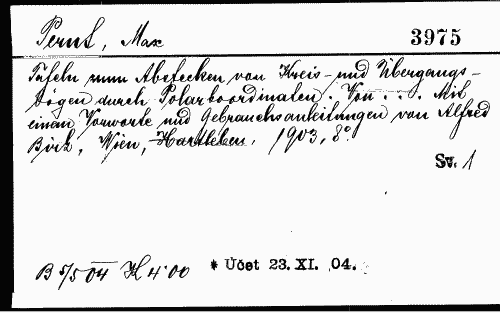 Pernt, Max
3975
Tafeln zum Abstecken von Kreis- und Übergangs-
bögen durch Polarkoordinaten. Von ... Mit
einem Vorworte und Gebrauchsanleitungen von Alfred
Birk, Wien, Hartleben, 1903, 8°.
Sv. 1
B 5/5 04 K 4·00 * Účet 23. XI. 04.